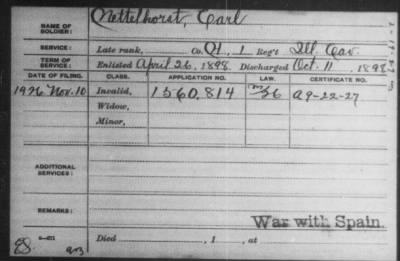 NAME OF SOLDIER: Nettelhorst, Carl
SERVICE: Late rank, Co. H, 1 Reg't Ill. Cav.
TERM OF SERVICE: Enlisted April 26, 1898 Discharged Oct. 11, 1898
DATE OF FILING. CLASS. APPLICATION NO. LAW. CERTIFICATE NO.
1926 Nov. 10 Invalid, 1560,814 A9-22-27
Widow,
Minor,
ADDITIONAL SERVICES:
REMARKS:
War with Spain.
Died , 1 , at